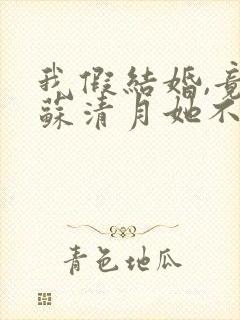 我假結婚,竟
蘇清月她不
青色地瓜